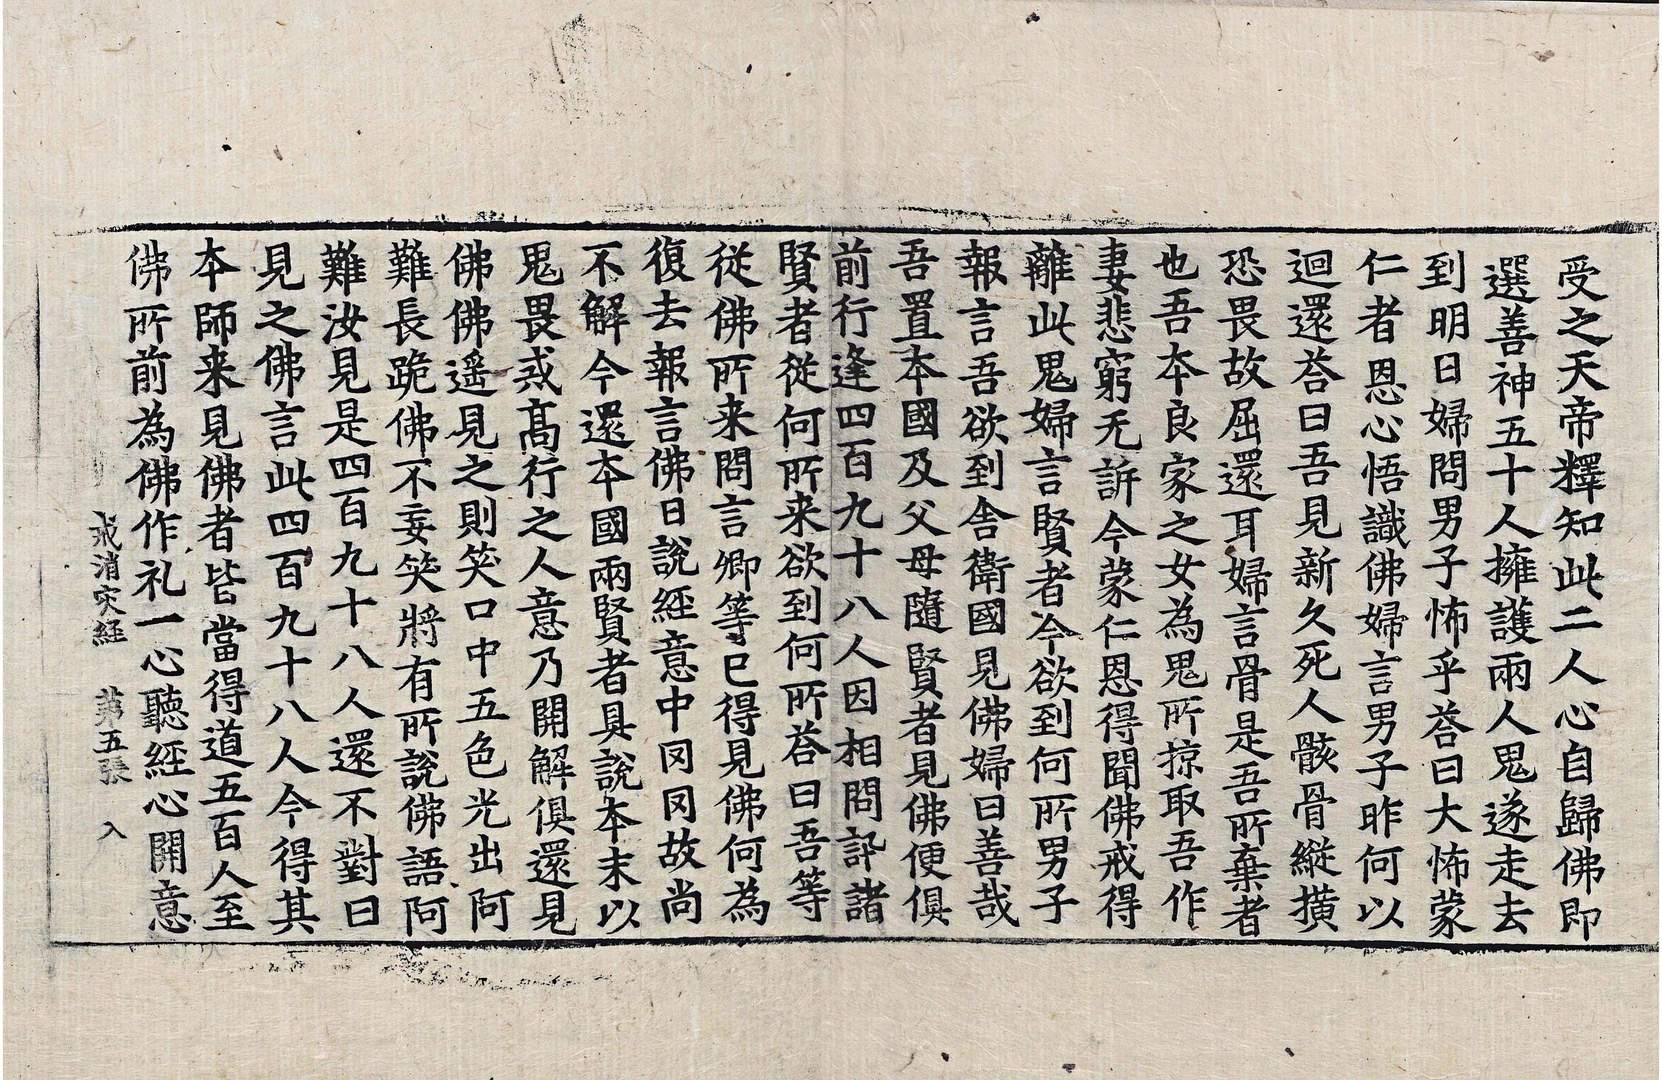 受之天帝釋知此二人心自歸佛即
選善神五十人擁護兩人鬼遂走去
到明日婦問男子怖乎荅曰大怖蒙
仁者恩心悟識佛婦言男子昨何以
迴還荅曰吾見新久死人骸骨縱撗
恐畏故屈還耳婦言骨是吾所棄者
也吾本良家之女為鬼所掠取吾作
妻悲窮无訴今蒙仁恩得聞佛戒得
離此鬼婦言賢者今欲到何所男子
報言吾欲到舎衛國見佛婦曰善哉
吾置本國及父母隨賢者見佛便俱
前行逢四百九十八人因相問訊諸
賢者從何所来欲到何所荅曰吾等
從佛所来問言卿等已得見佛何為
復去報言佛日說經意中罔罔故尚
不解今還本國兩賢者具說本末以
鬼畏戒高行之人意乃開解俱還見
佛佛遥見之則笑口中五色光出阿
難長跪佛不妄笑將有所說佛語阿
難汝見是四百九十八人還不對曰
見之佛言此四百九十八人今得其
本師来見佛者皆當得道五百人至
佛所前為佛作礼一心聽經心開意
戒消灾経 第五張 入